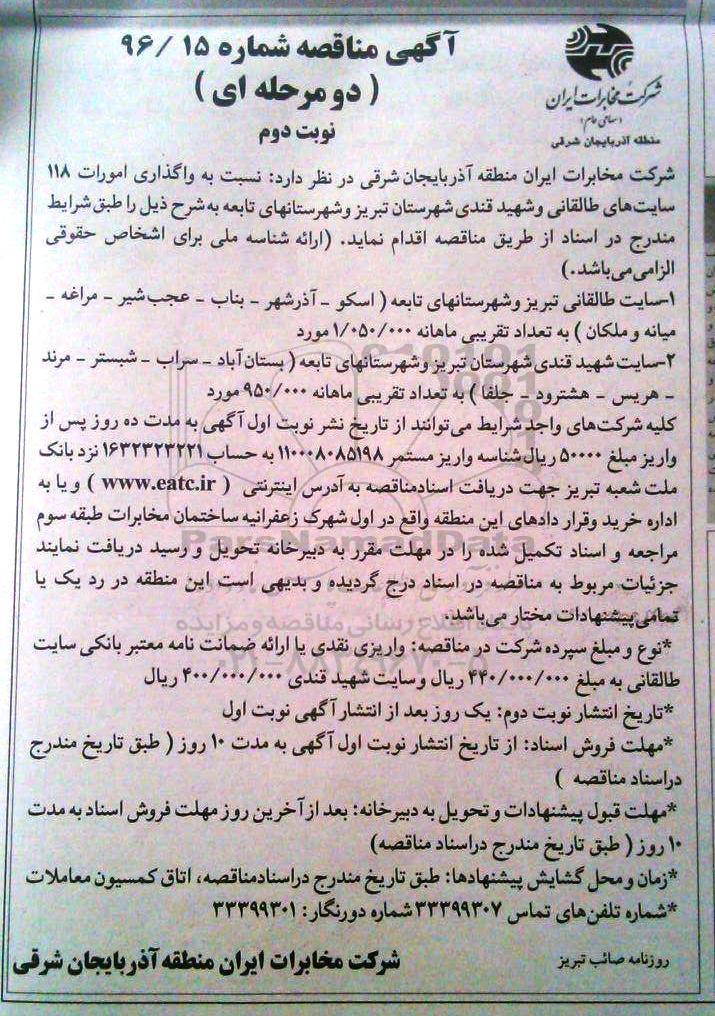 آگهی مناقصه شماره ۱۵ /۹۶
( دو مرحله ای )
نوبت دوم
شرکت مخابرات ایران
(سهامی عام)
منطقه آذربایجان شرقی
شرکت مخابرات ایران منطقه آذربایجان شرقی در نظر دارد: نسبت به واگذاری امورات ۱۱۸
سایت‌های طالقانی وشهید قندی شهرستان تبریز وشهرستانهای تابعه به شرح ذیل را طبق شرایط
مندرج در اسناد از طریق مناقصه اقدام نماید. (ارائه شناسه ملی برای اشخاص حقوقی
الزامی‌می‌باشد.)
۱-سایت طالقانی تبریز وشهرستانهای تابعه ( اسکو - آذرشهر - بناب - عجب‌شیر - مراغه -
میانه و ملکان ) به تعداد تقریبی ماهانه ۱/۰۵۰/۰۰۰ مورد
۲-سایت شهید قندی شهرستان تبریز وشهرستانهای تابعه ( بستان‌آباد - سراب - شبستر - مرند
- هریس - هشترود - جلفا ) به تعداد تقریبی ماهانه ۹۵۰/۰۰۰ مورد
کلیه شرکت‌های واجد شرایط می‌توانند از تاریخ نشر نوبت اول آگهی به مدت ده روز پس از
واریز مبلغ ۵۰۰۰۰ ریال شناسه واریز مستمر ۱۱۰۰۰۸۰۸۵۱۹۸ به حساب ۱۶۳۲۳۲۳۲۲۱ نزد بانک
ملت شعبه تبریز جهت دریافت اسنادمناقصه به آدرس اینترنتی ( www.eatc.ir ) و یا به
اداره خرید وقرار دادهای این منطقه واقع در اول شهرک زعفرانیه ساختمان مخابرات طبقه سوم
مراجعه و اسناد تکمیل شده را در مهلت مقرر به دبیرخانه تحویل و رسید دریافت نمایند
جزئیات مربوط به مناقصه در اسناد درج گردیده و بدیهی است این منطقه در رد یک یا
تمامی‌پیشنهادات مختار می‌باشد.
*نوع و مبلغ سپرده شرکت در مناقصه: واریزی نقدی یا ارائه ضمانت نامه معتبر بانکی سایت
طالقانی به مبلغ ۴۴۰/۰۰۰/۰۰۰ ریال وسایت شهید قندی ۴۰۰/۰۰۰/۰۰۰ ریال
*تاریخ انتشار نوبت دوم: یک روز بعد از انتشار آگهی نوبت اول
*مهلت فروش اسناد: از تاریخ انتشار نوبت اول آگهی به مدت ۱۰ روز ( طبق تاریخ مندرج
دراسناد مناقصه )
*مهلت قبول پیشنهادات و تحویل به دبیرخانه: بعد از آخرین روز مهلت فروش اسناد به مدت
۱۰ روز ( طبق تاریخ مندرج دراسناد مناقصه)
*زمان و محل گشایش پیشنهادها: طبق تاریخ مندرج دراسنادمناقصه، اتاق کمسیون معاملات
*شماره تلفن‌های تماس ۳۳۳۹۹۳۰۷ شماره دورنگار: ۳۳۳۹۹۳۰۱
روزنامه صائب تبریز
شرکت مخابرات ایران منطقه آذربایجان شرقی
ParsNamadData
پایگاه اطلاع رسانی مناقصه و مزایده
۰۲۱-۸۸۳۴۹۶۷۰-۵